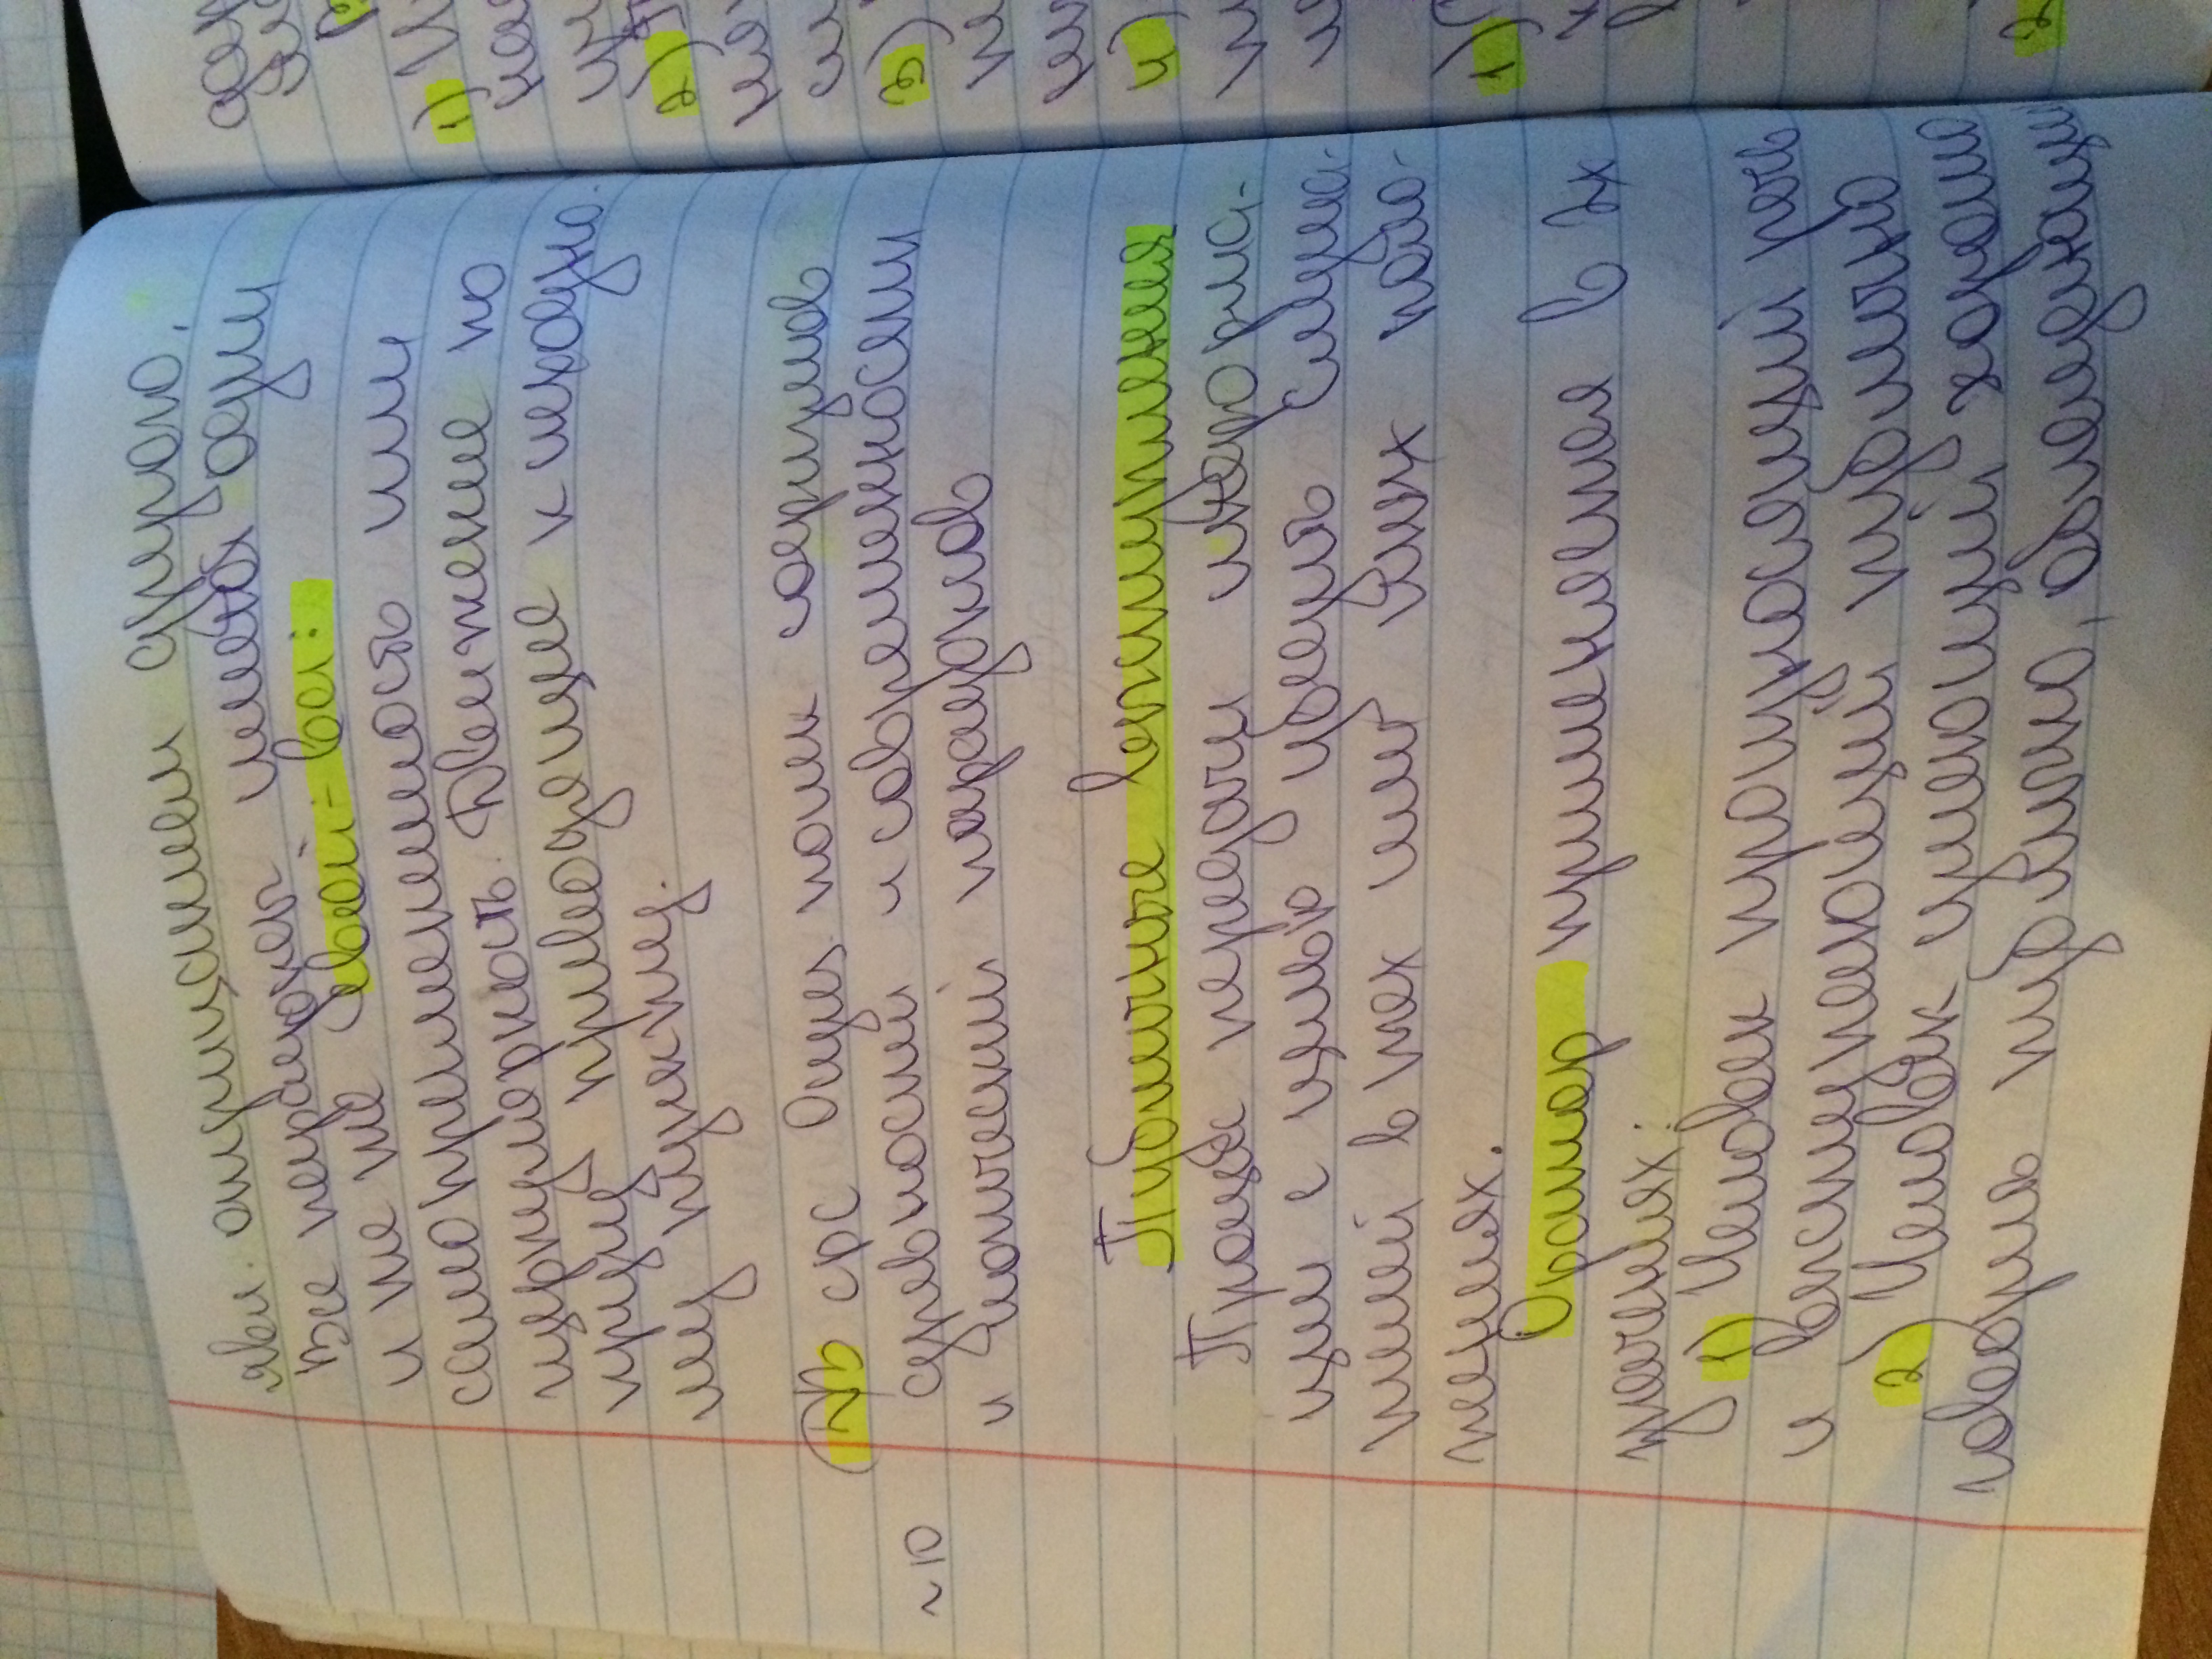 явл. отрицанием другого.
Все парадоксы имеют одни
и те же свой-ва:
самоприменимость или
циркулярность. Движение по
кругу приводящие к исходно-
му пункту.
ДЗ срс поиск софизмов
~10 древности и современности
и логический парадоксов
Публичные выступления
Процесс передачи информа-
ции с целью убедить слуша-
телей в тех или иных поло-
жениях.
Оратор применяется в 2х
значениях:
1) Человек произносящий речь
и выступающий публично
2) Человек умеющий хорошо
говорить публично, обладающий
1)
2)
3)
4)
1)
2